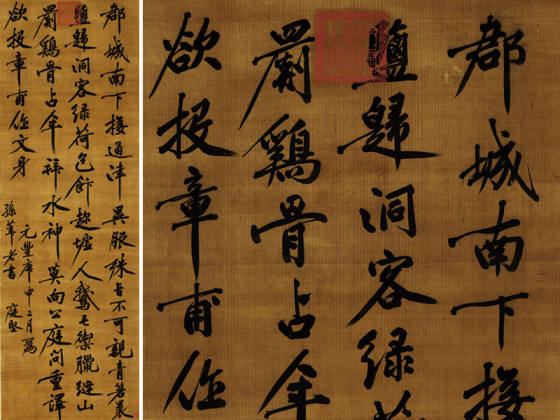 郡城南下接通津異服殊音不可親青箬裹
鹽歸洞客緑荷包飰趂墟人鵞毛禦臘縫山
罽鷄骨占年拜水神莫向公庭問重譯
欲投章甫作文身
元豐庚申二月為
孫莘老書 庭堅
郡城南下接
鹽歸洞客緑
罽鷄骨占年
欲投章甫作